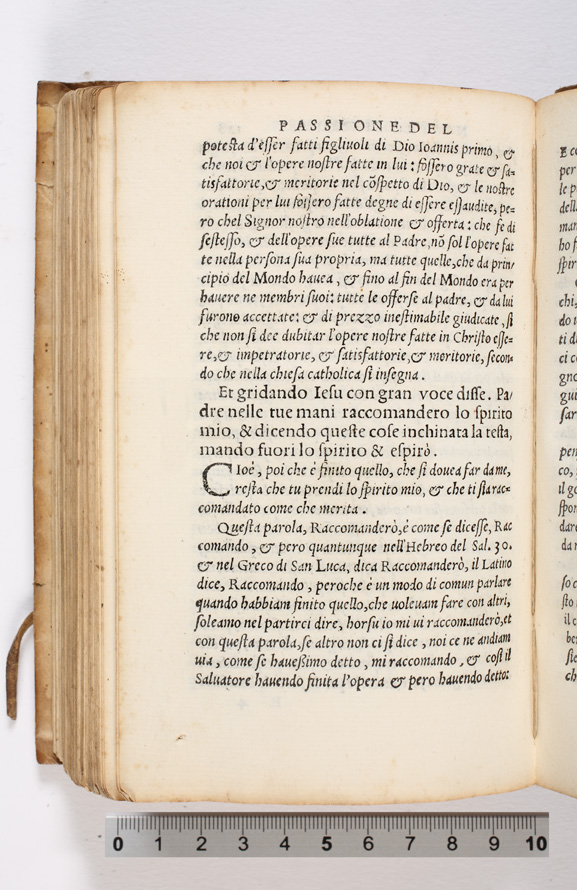 PASSIONE DEL
potesta d'esser fatti figliuoli di Dio Ioannis primo, &
che noi & l'opere nostre fatte in lui: fossero grate & sa-
tisfattorie, & meritorie nel cōspetto di Dio, & le nostre
orationi per lui fossero fatte degne di essere essaudite, pe-
ro chel Signor nostro nell'oblatione & offerta: che fe di
se stesso, & dell'opere sue tutte al Padre, nō sol l'opere fat
te nella persona sua propria, ma tutte quelle, che da prin/
cipio del Mondo hauea, & fino al fin del Mondo era per
hauere ne membri suoi: tutte le offerse al padre, & da lui
furono accettate: & di prezzo inestimabile giudicate, si
che non si dee dubitar l'opere nostre fatte in Christo esse-
re, & impetratorie, & satisfattorie, & meritorie, secon-
do che nella chiesa catholica si insegna.
Et gridando Iesu con gran voce disse. Pa/
dre nelle tue mani raccomandero lo spirito
mio, & dicendo queste cose inchinata la testa,
mando fuori lo spirito & espirò.
CIoè, poi che è finito quello, che si douea far da me,
resta che tu prendi lo spirito mio, & che ti sia rac-
comandato come che merita.
Questa parola, Raccomanderò, è come se dicesse, Rac
comando, & pero quantunque nell'Hebreo del Sal. 30.
& nel Greco di San Luca, dica Raccomanderò, il Latino
dice, Raccomando, peroche è un modo di comun parlare
quando habbiam finito quello, che uoleuam fare con altri,
soleamo nel partirci dire, horsu io mi ui raccomanderò, et
con questa parola, se altro non ci si dice, noi ce ne andiam
uia, come se hauessimo detto, mi raccomando, & cosi il
Saluatore hauendo finita l'opera & pero hauendo detto:
0 1 2 3 4 5 6 7 8 9 10